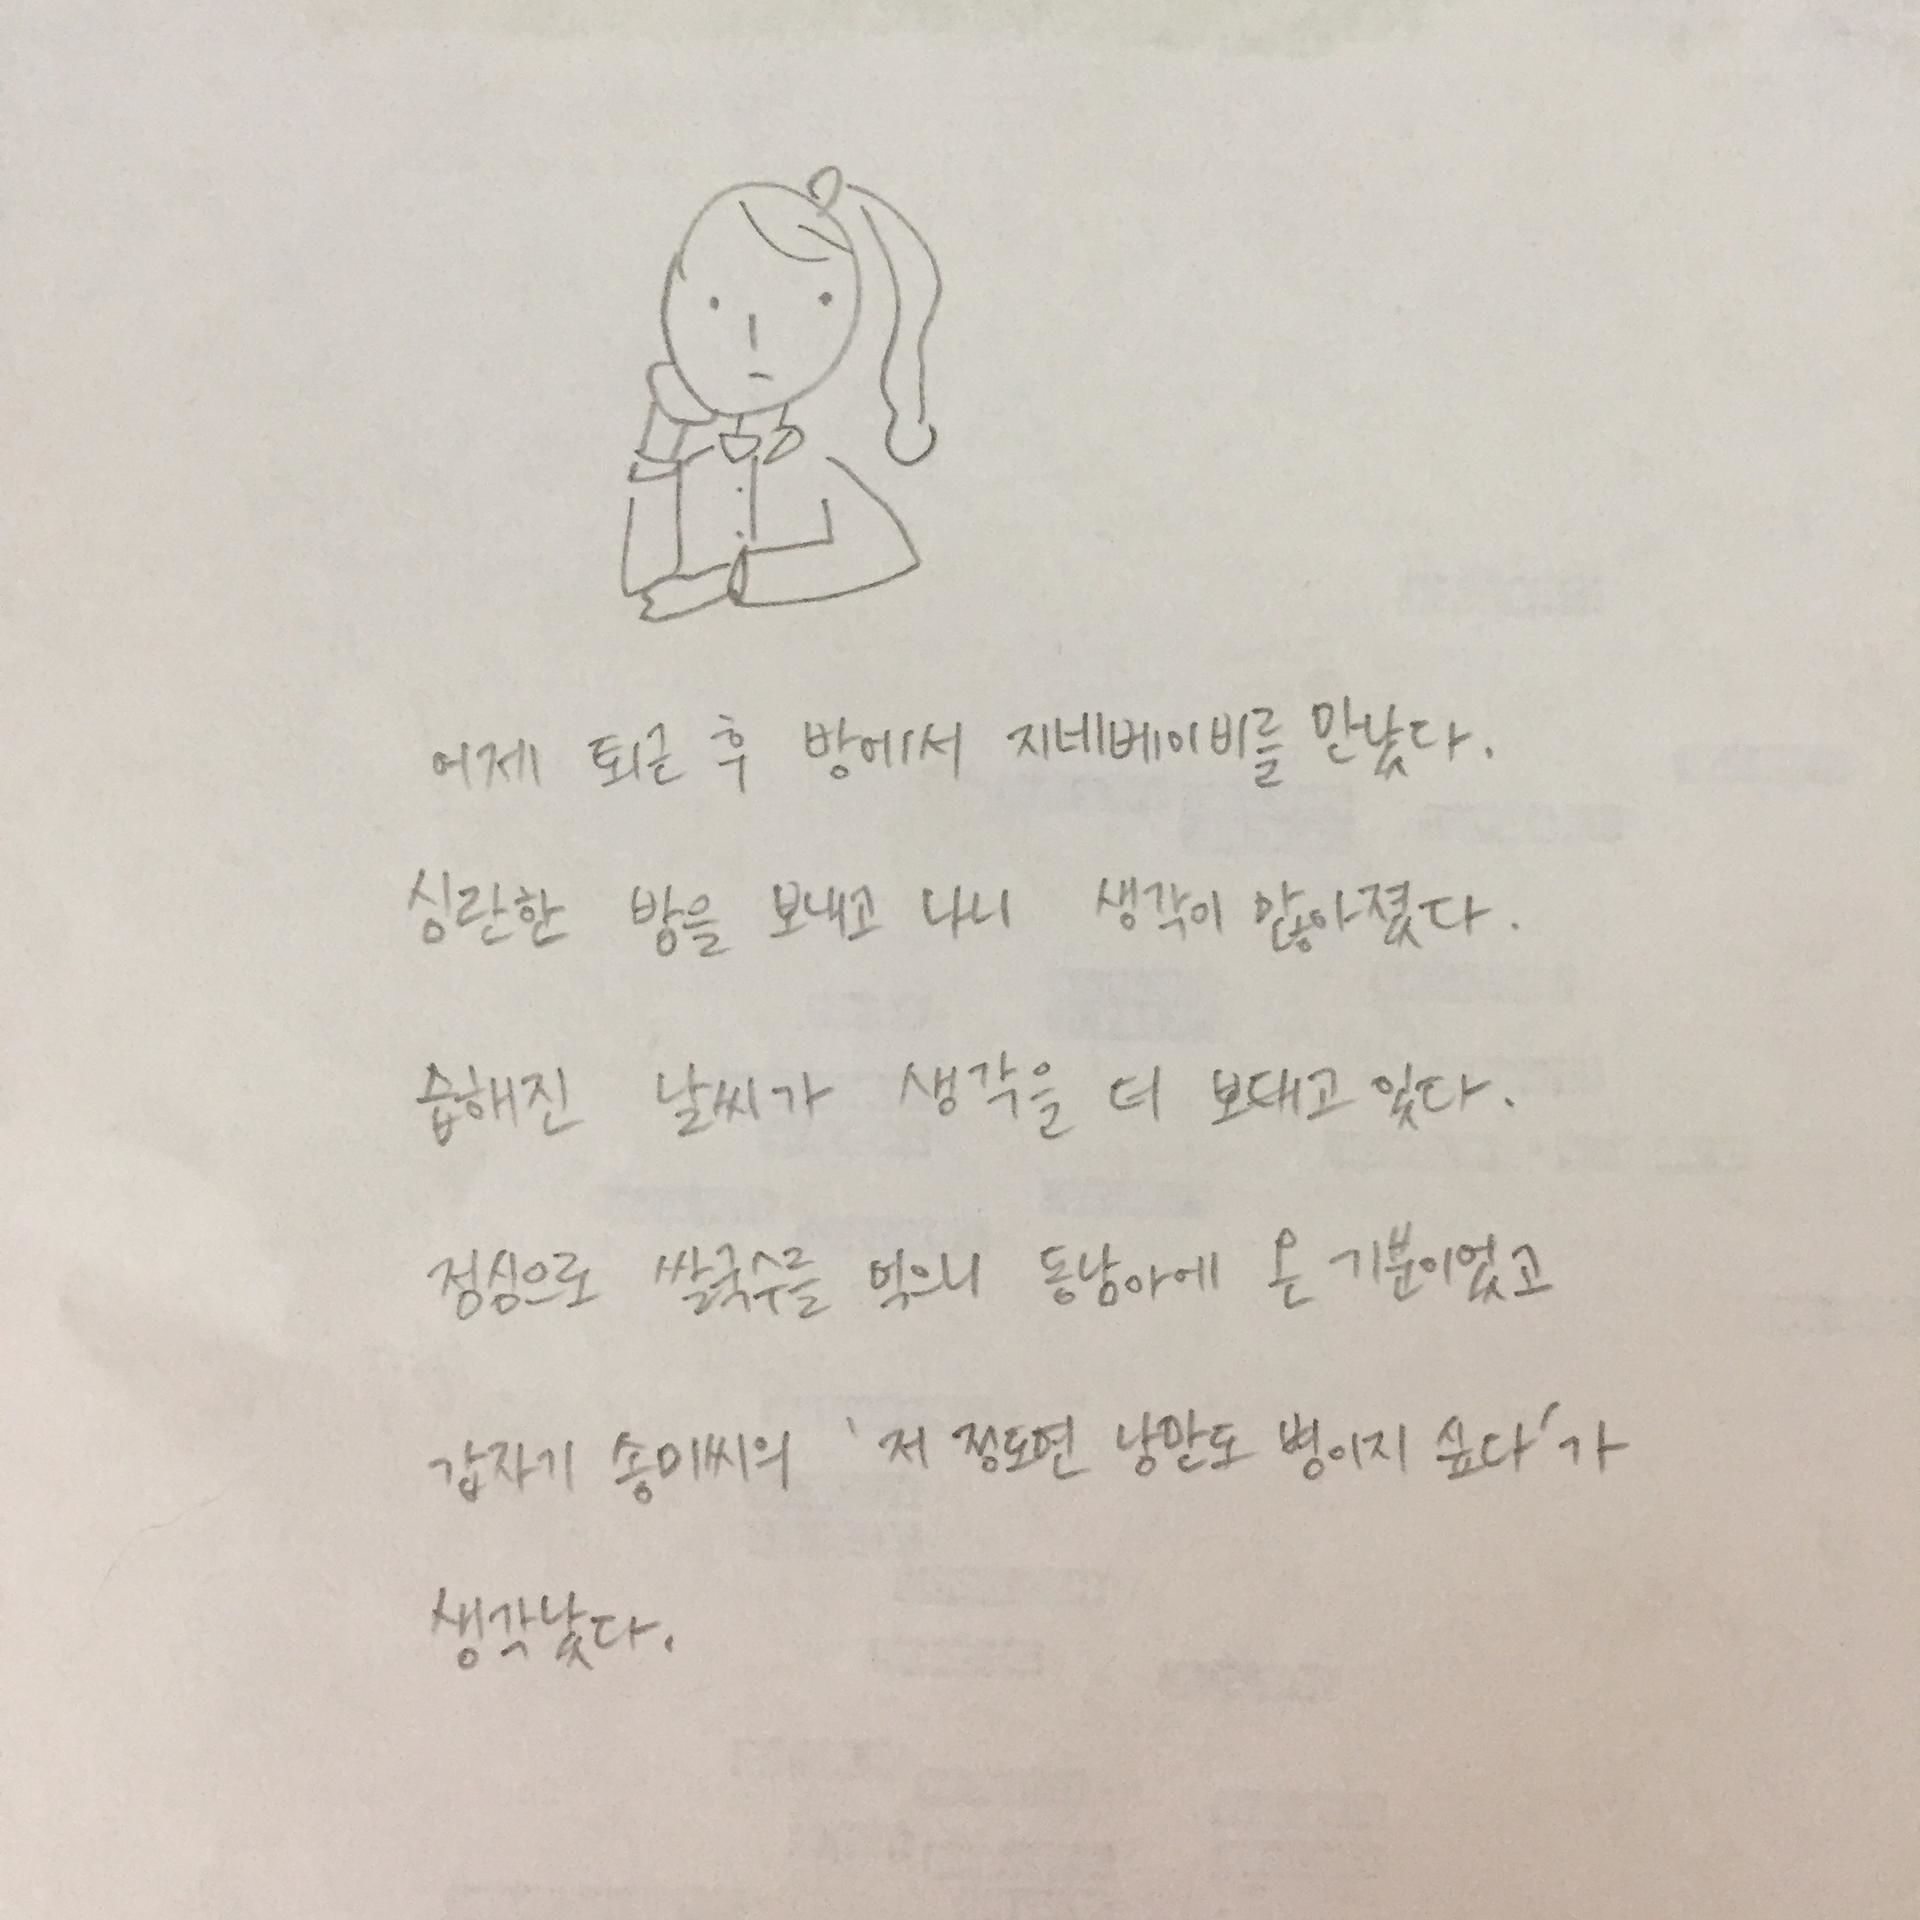 어제 퇴근 후 방에서 지네베이비를 만났다.
심란한 밤을 보내고 나니 생각이 많아졌다.
습해진 날씨가 생각을 더 보태고 있다.
점심으로 쌀국수를 먹으니 동남아에 온 기분이었고
갑자기 송미씨의 '저 정도면 낭만도 병이지 싶다'가
생각났다.